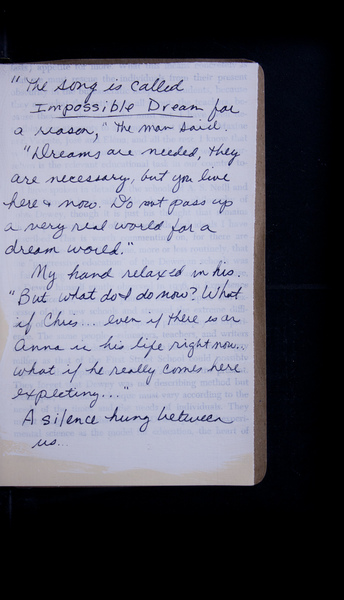 "The song is called
Impossible Dream for
a reason," the man said.
"Dreams are needed, they
are necessary, but you live
here & now. Do not pass up
a very real world for a
dream world."
My hand relaxed in his.
"But what do I do now? What
if Chris... even if there is an
Anna in his life right now...
what if he really comes here
expecting..."
A silence hung between
us...